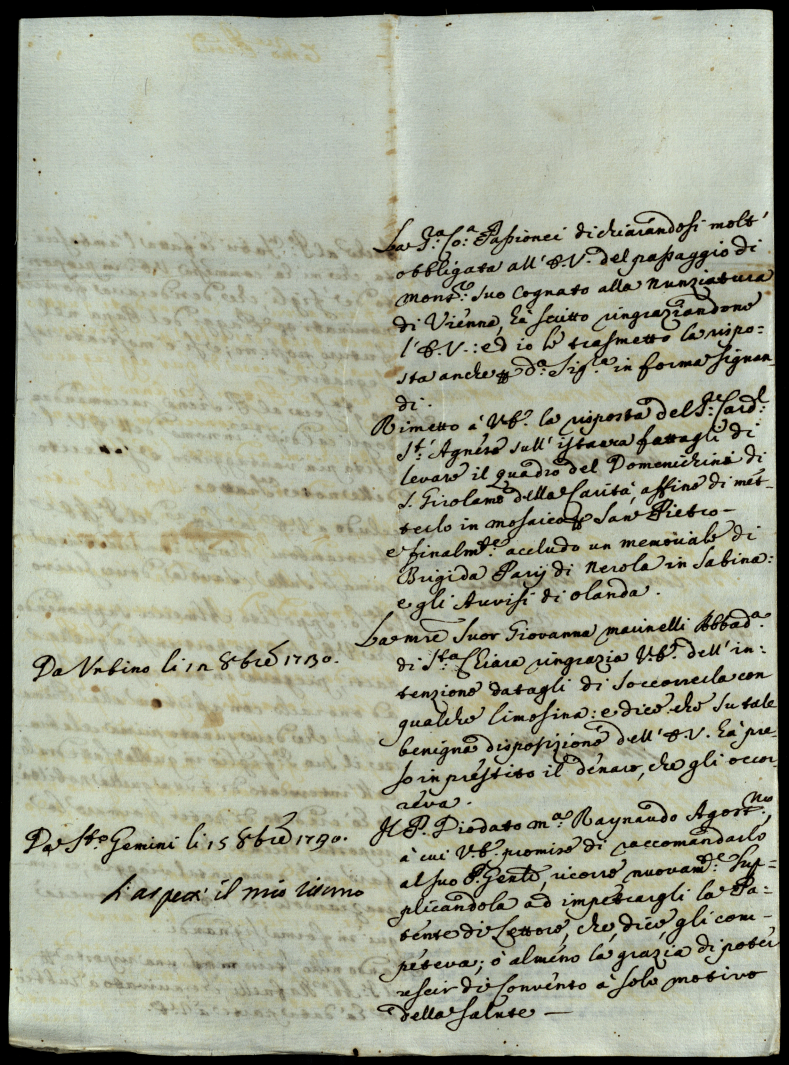 La S.ra Co: Passionei dichiarandosi molt'
obbligata all' E.V. del passaggio di
mons.r suo cognato alla Nunziatura
di Vienna, hà scritto ringraziandone
l' E.V.: ed io le trasmetto la rispo-
sta anche d.a Sig.ra in forma signan-
di.
Rimetto à V.E. la risposta del S.r Card.l
S.t' Agnese sull' istanza fattagli di
levare il quadro del Domenichini di
S. Girolamo della Carità, affine di met-
terlo in mosaico San Pietro—
e finalm.te accludo un memoriale di
Brigida Parij di Nerola in Sabina:
e gli Avvisi di olanda.
Da Urbino li 12 8bre 1730.
La mre Suor Giovanna marinelli Abbad.a
di S.ta Chiara ringrazia V.E. dell' in-
tenzione datagli di soccorrerla con
qualche limosina: e dice che su tale
benigna disposizione dell' E.V. hà pre-
so in prestito il denaro, che gli occor-
reva.
Da S.to Gemini li 15 8bre 1730.
Il P. Diodato m.a Raynaudo Agost.no
à cui V.E. promise di raccomandarlo
al suo P. Gen.le, ricorre nuovam.te sup-
plicandola ad impetrargli la Pa-
tente di Lettore, che, dice gli com-
peteva; ò almeno la grazia di poter
rescir di Convento à solo motivo
della salute—
il mio